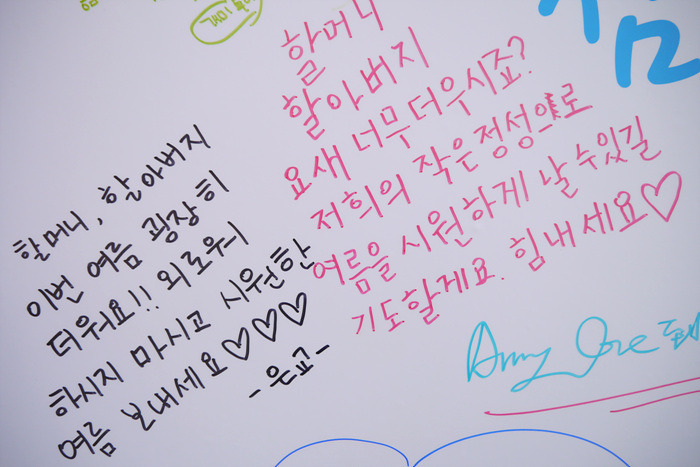 할머니
할아버지
요새 너무 더우시죠?
저희의 작은정성으로
여름을 시원하게 날 수있길
기도할게요. 힘내세요♡
할머니, 할아버지
이번 여름 굉장히
더워요!! 외로워
하시지 마시고 시원한
여름 보내세요♡♡♡
-은교-